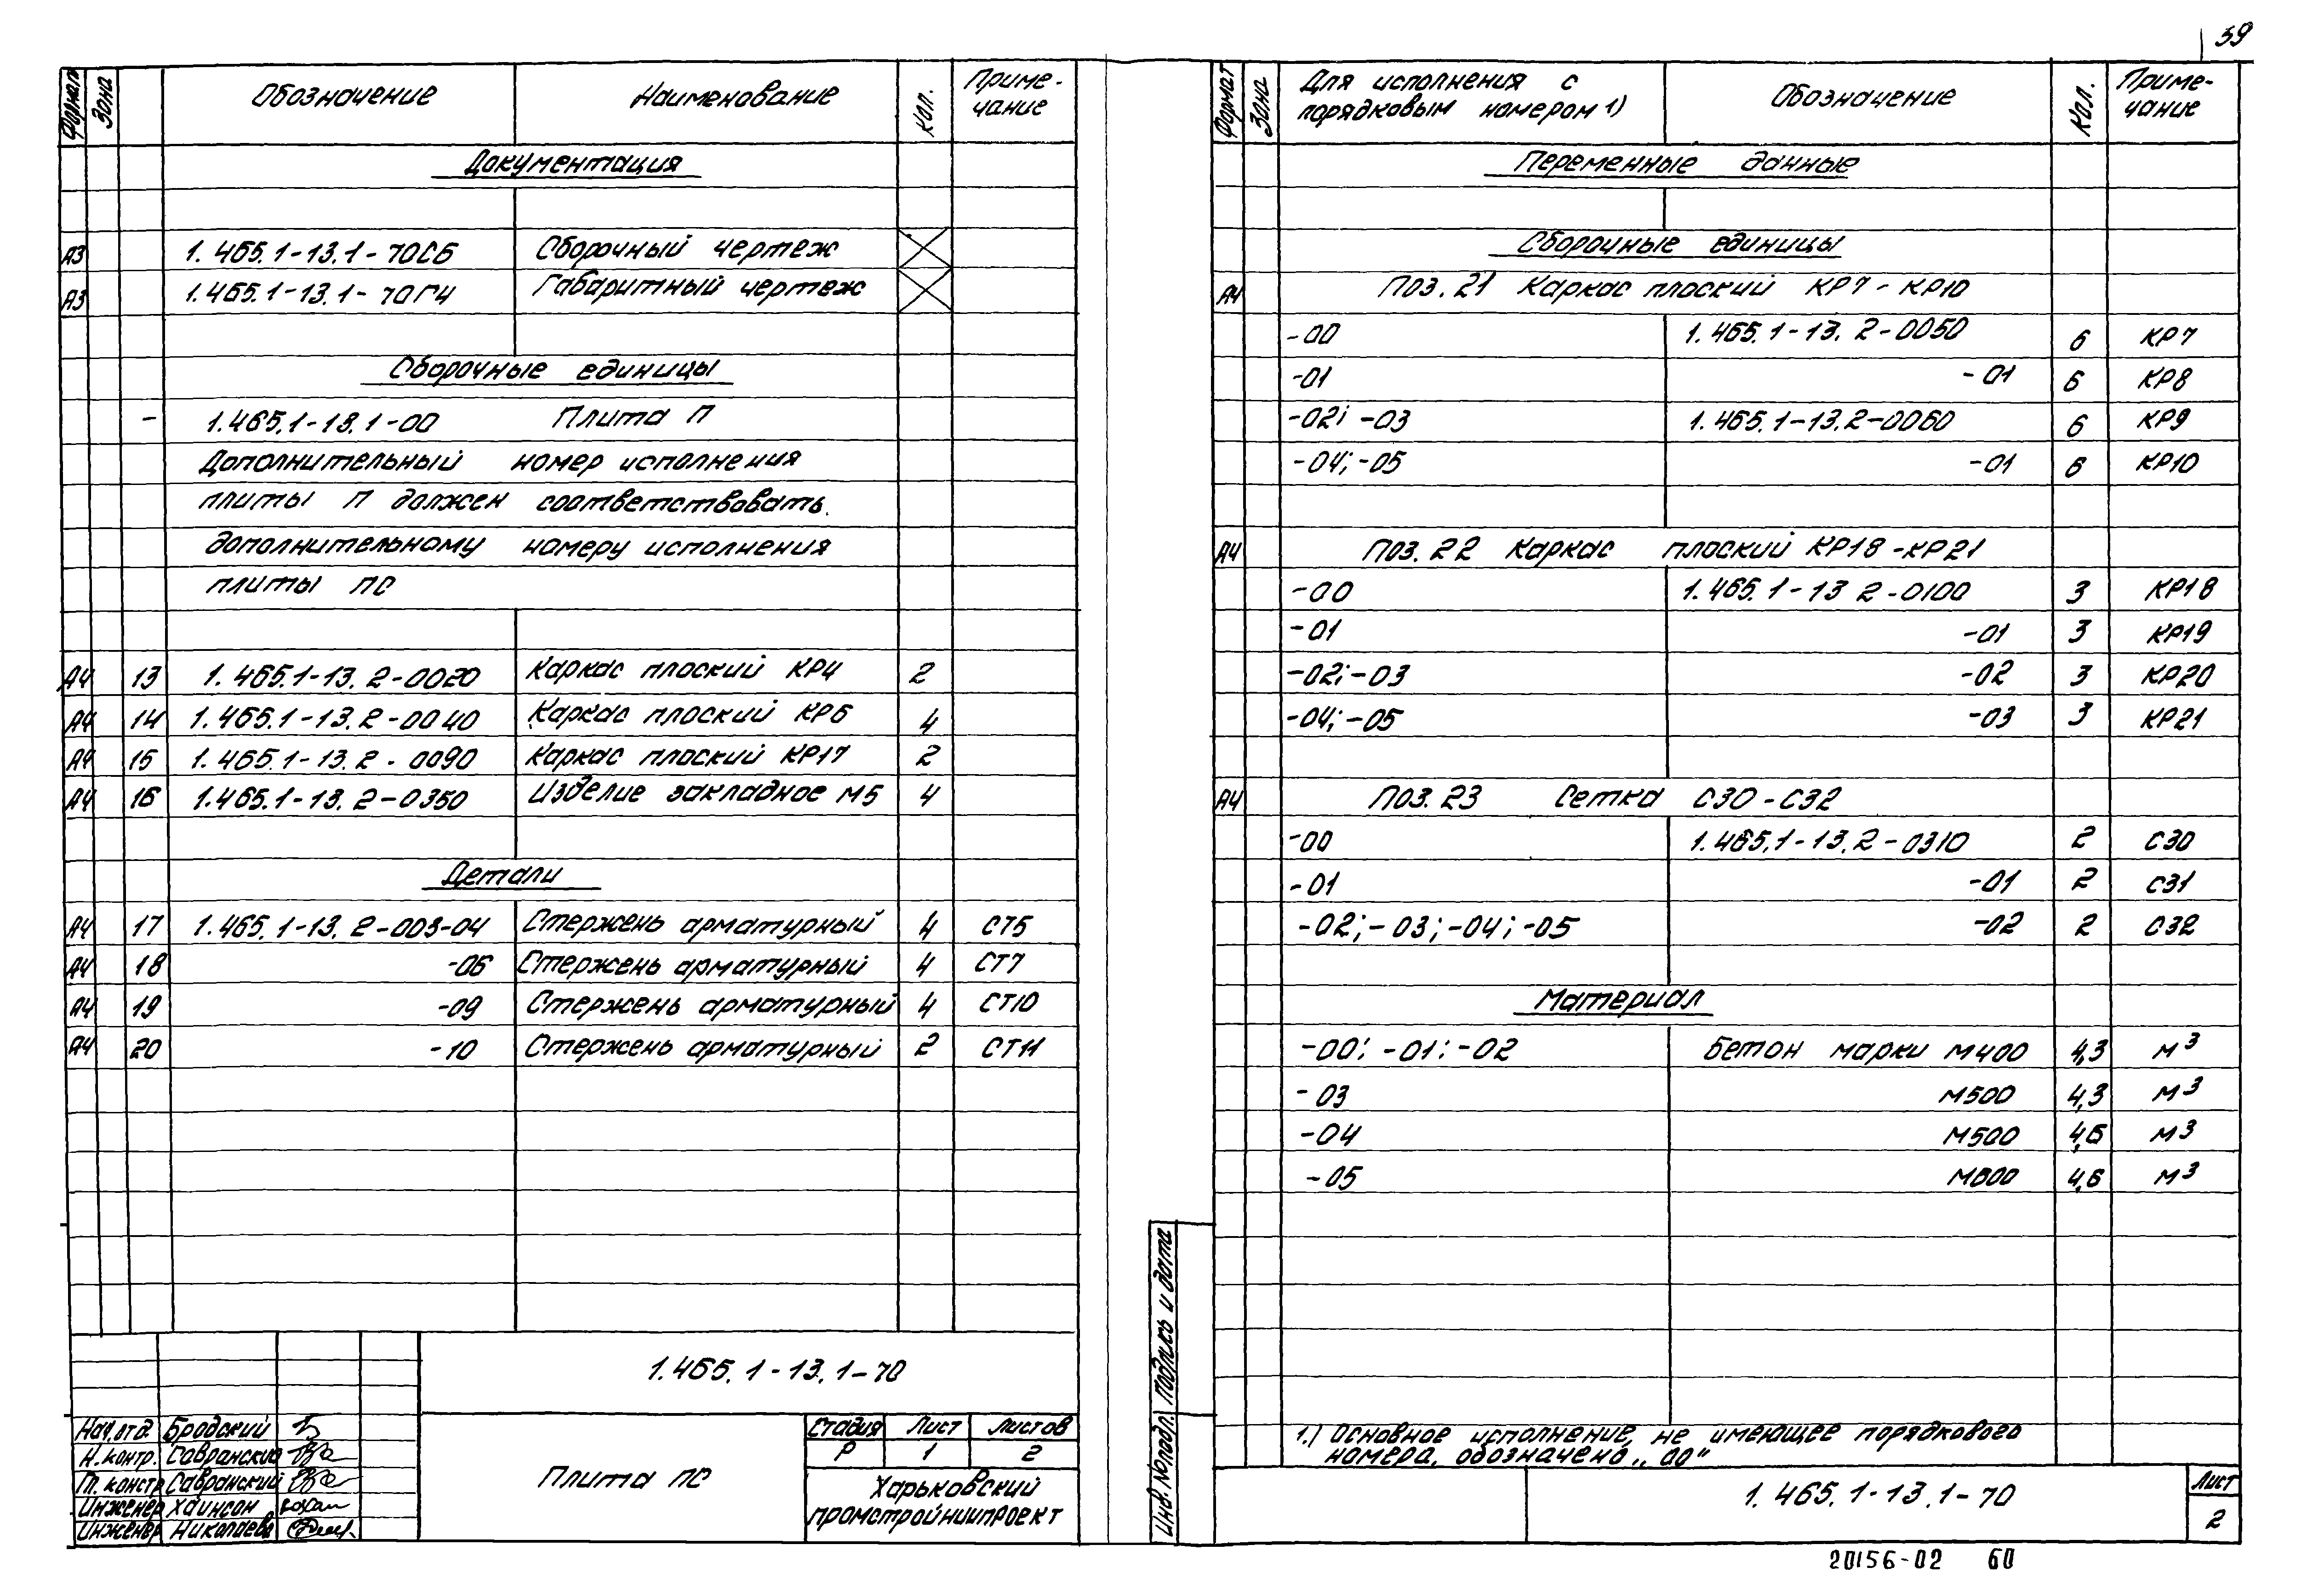 59
Формат Зона Обозначение Наименование Кол. Приме-
чание
Документация
А3 1.465.1-13.1-70СБ Сборочный чертеж
А3 1.465.1-13.1-70ГЧ Габаритный чертеж
Сборочные единицы
- 1.465.1-13.1-00 Плита П
Дополнительный номер исполнения
плиты П должен соответствовать
дополнительному номеру исполнения
плиты ПС
А4 13 1.465.1-13.2-0020 Каркас плоский КР4 2
А4 14 1.465.1-13.2-0040 Каркас плоский КР6 4
А4 15 1.465.1-13.2-0090 Каркас плоский КР17 2
А4 16 1.465.1-13.2-0350 Изделие закладное М5 4
Детали
А4 17 1.465.1-13.2-003-04 Стержень арматурный 4 СТ5
А4 18 -06 Стержень арматурный 4 СТ7
А4 19 -09 Стержень арматурный 4 СТ10
А4 20 -10 Стержень арматурный 2 СТ11
1.465.1-13.1-70
Нач.отд. Бродский
Н.контр. Савранский
Гл.констр Савранский
Инженер Хаинсон
Инженер Николаева
Плита ПС
Стадия Лист Листов
Р 1 2
Харьковский
промстройниипроект
Формат Зона Для исполнения с
порядковым номером 1) Обозначение Кол. Приме-
чание
Переменные данные
Сборочные единицы
А4 Поз.21 Каркас плоский КР7-КР10
-00 1.465.1-13.2-0050 6 КР7
-01 -01 6 КР8
-02; -03 1.465.1-13.2-0060 6 КР9
-04; -05 -01 6 КР10
А4 Поз.22 Каркас плоский КР18-КР21
-00 1.465.1-13 2-0100 3 КР18
-01 -01 3 КР19
-02; -03 -02 3 КР20
-04; -05 -03 3 КР21
А4 Поз.23 Сетка С30-С32
-00 1.465.1-13.2-0310 2 С30
-01 -01 2 С31
-02; -03; -04; -05 -02 2 С32
Материал
-00; -01; -02 Бетон марки М400 4,3 м³
-03 М500 4,3 м³
-04 М500 4,6 м³
-05 М600 4,6 м³
1.) Основное исполнение, не имеющее порядкового
номера, обозначено „00"
Инв.№подл. Подпись и дата
1.465.1-13.1-70
Лист
2
20156-02 60